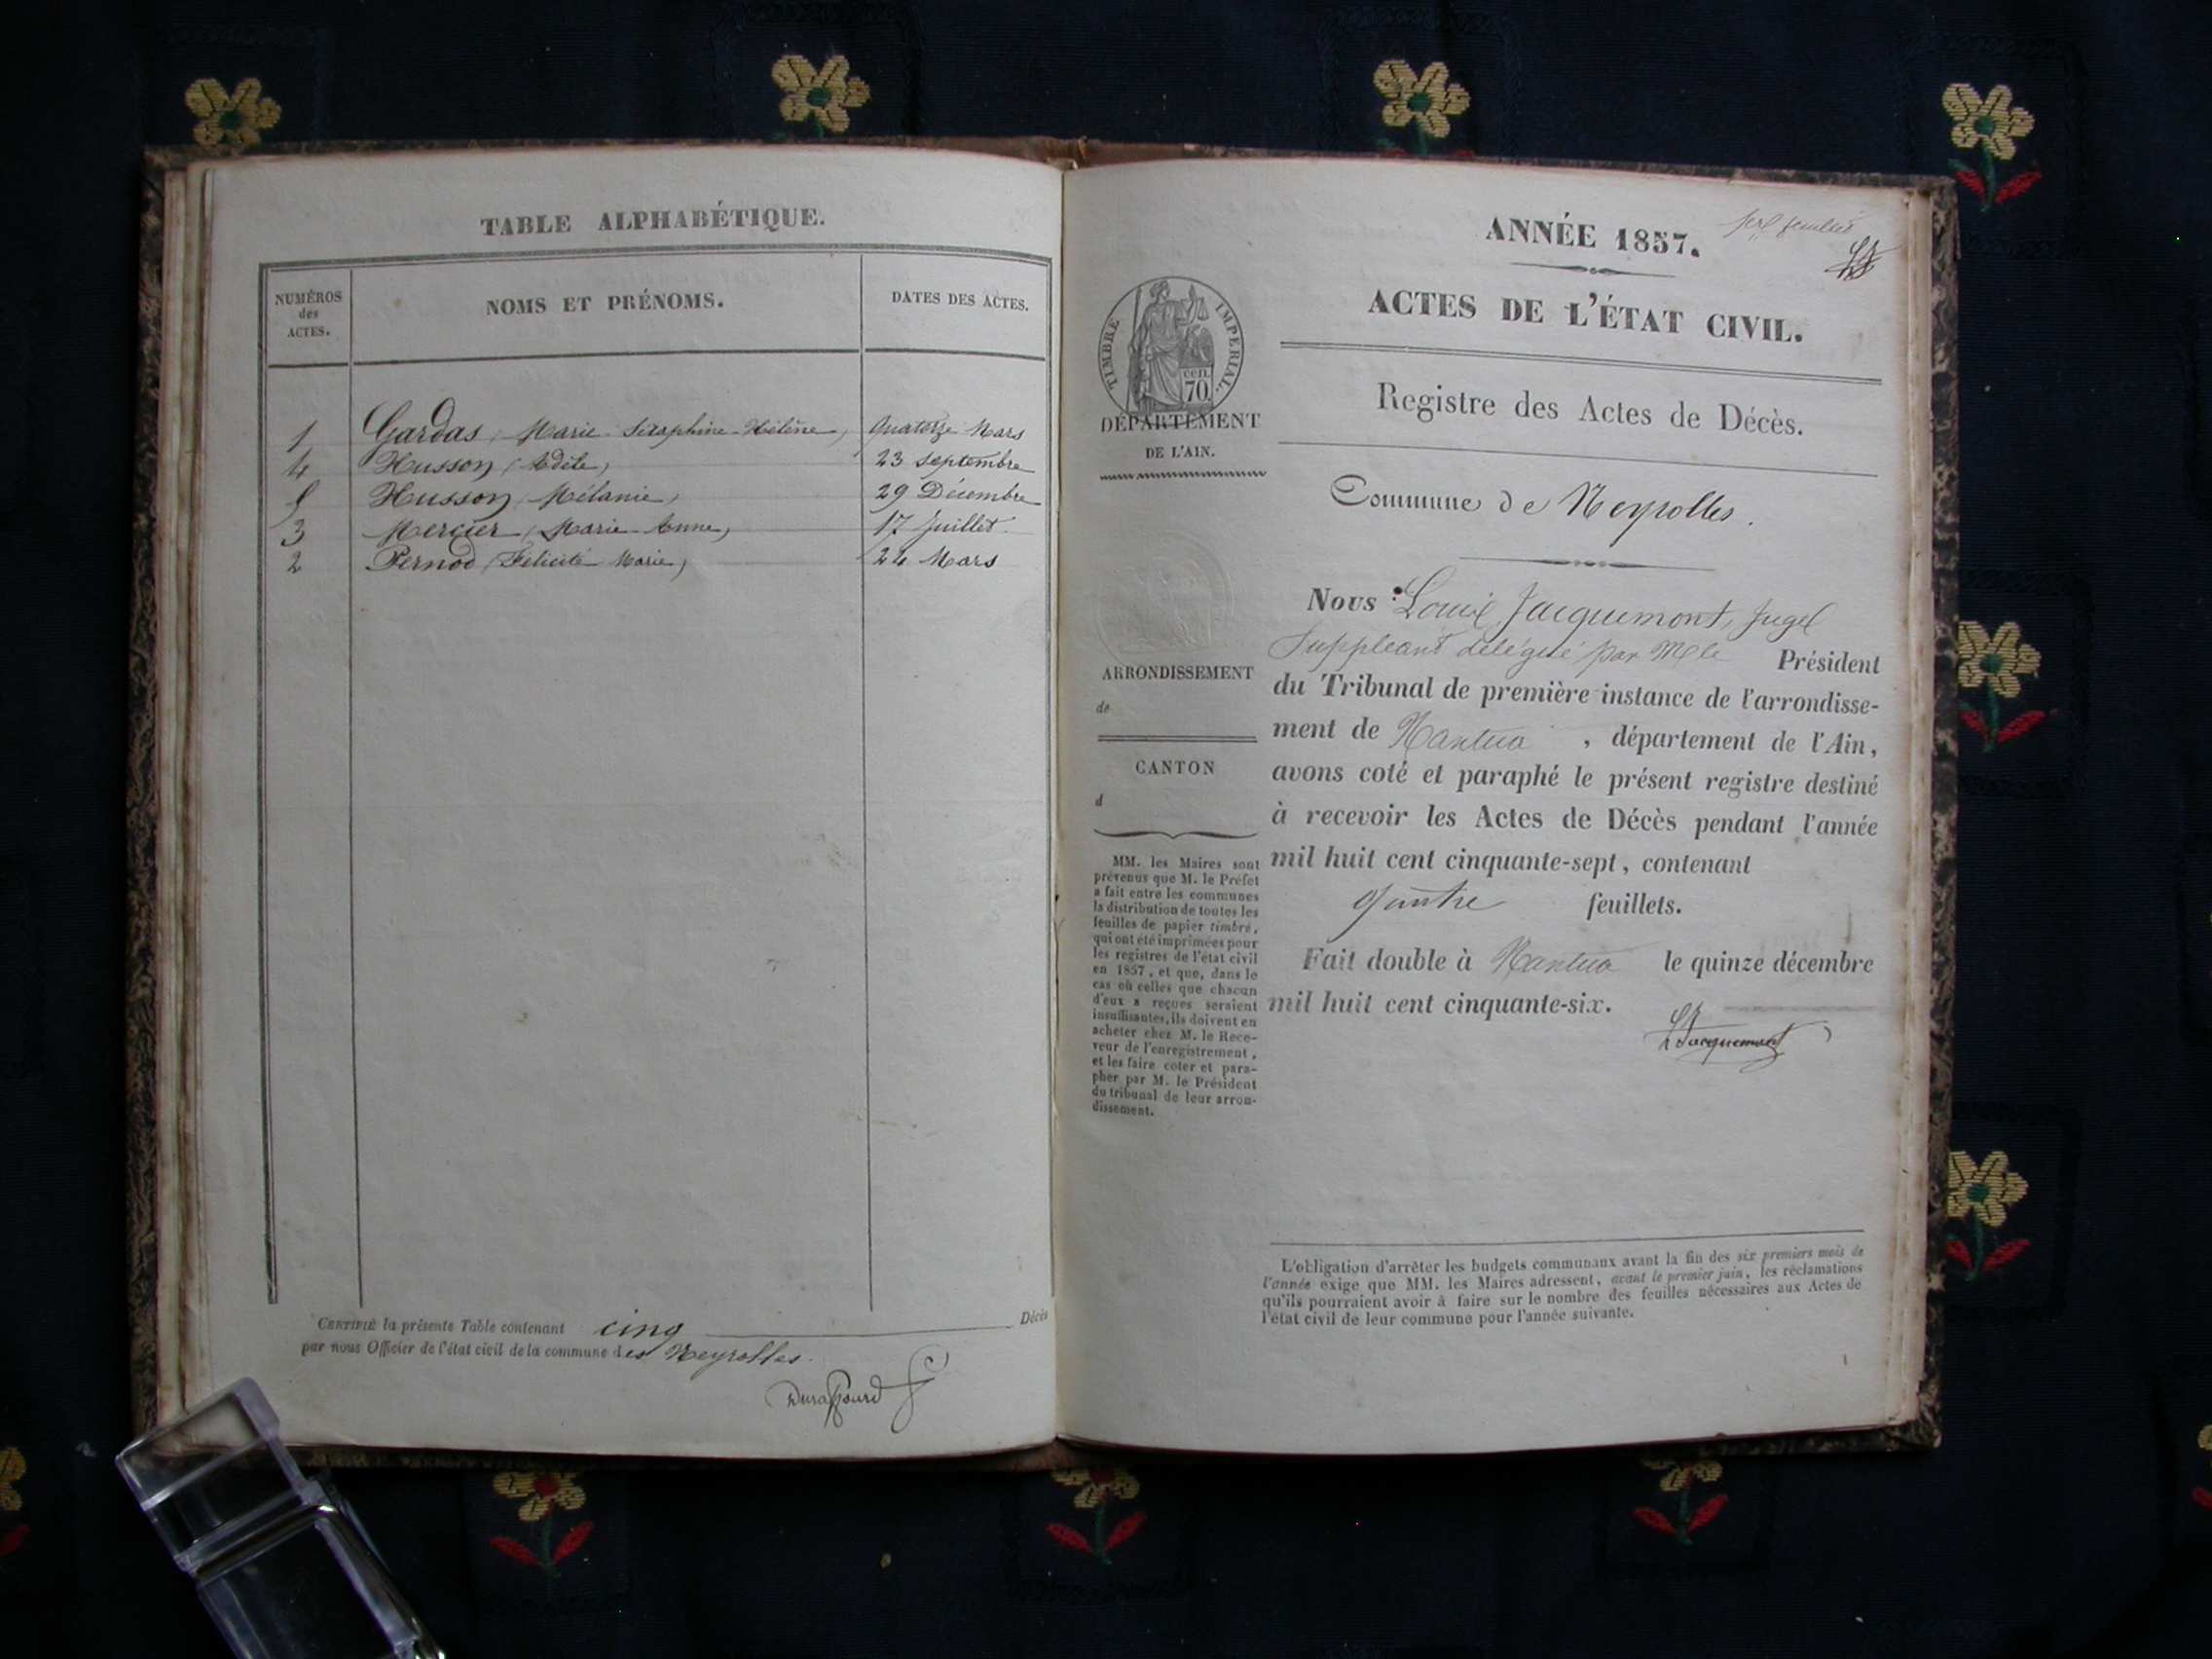 TABLE ALPHABÉTIQUE.
NUMÉROS
des
ACTES.
NOMS ET PRÉNOMS.
DATES DES ACTES.
1 Gardas, Marie Séraphine Hélène, Quatorze Mars
4 Husson (Adèle, 23 septembre
5 Husson, Mélanie, 29 Décembre
3 Mercier (Marie Anne, 17 Juillet
2 Pernod (Félicité Marie, 24 Mars
CERTIFIÉ la présente Table contenant cinq Décès
par nous Officier de l'état civil de la commune des Neyrolles.
Duraffourd
ANNÉE 1857.
ACTES DE L'ÉTAT CIVIL.
Registre des Actes de Décès.
Commune de Neyrolles.
TIMBRE IMPERIAL.
cen.
70.
DÉPARTEMENT
DE L'AIN.
ARRONDISSEMENT
de
CANTON
d
MM. les Maires sont
prévenus que M. le Préfet
a fait entre les communes
la distribution de toutes les
feuilles de papier timbré,
qui ont été imprimées pour
les registres de l'état civil
en 1857, et que, dans le
cas où celles que chacun
d'eux a reçues seraient
insuffisantes, ils doivent en
acheter chez M. le Rece-
veur de l'enregistrement,
et les faire coter et para-
pher par M. le Président
du tribunal de leur arron-
dissement.
Nous Louis Jacquemont, Juge
Suppléant délégué par M le Président
du Tribunal de première instance de l'arrondisse-
ment de Nantua, département de l'Ain,
avons coté et paraphé le présent registre destiné
à recevoir les Actes de Décès pendant l'année
mil huit cent cinquante-sept, contenant
quatre feuillets.
Fait double à Nantua le quinze décembre
mil huit cent cinquante-six.
L Jacquemont
L'obligation d'arrêter les budgets communaux avant la fin des six premiers mois de
l'année exige que MM. les Maires adressent, avant le premier juin, les réclamations
qu'ils pourraient avoir à faire sur le nombre des feuilles nécessaires aux Actes de
l'état civil de leur commune pour l'année suivante.